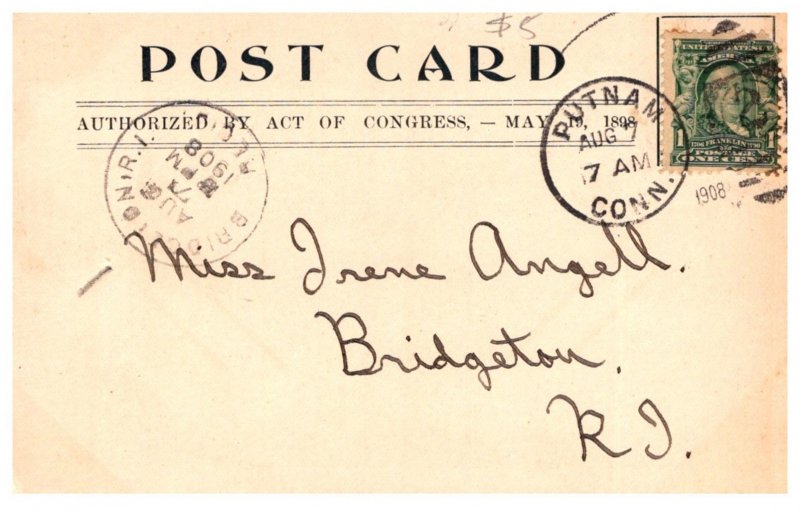 $5
POST CARD
AUTHORIZED BY ACT OF CONGRESS, — MAY 19, 1898
PUTNAM
AUG 7
7 AM
CONN.
1908
UNITED STATES OF
AMERICA
1706 FRANKLIN 1790
POSTAGE
ONE CENT
BRIDGETON, R.I.
AUG
7
PM
1908
Miss Irene Angell.
Bridgeton.
R I.